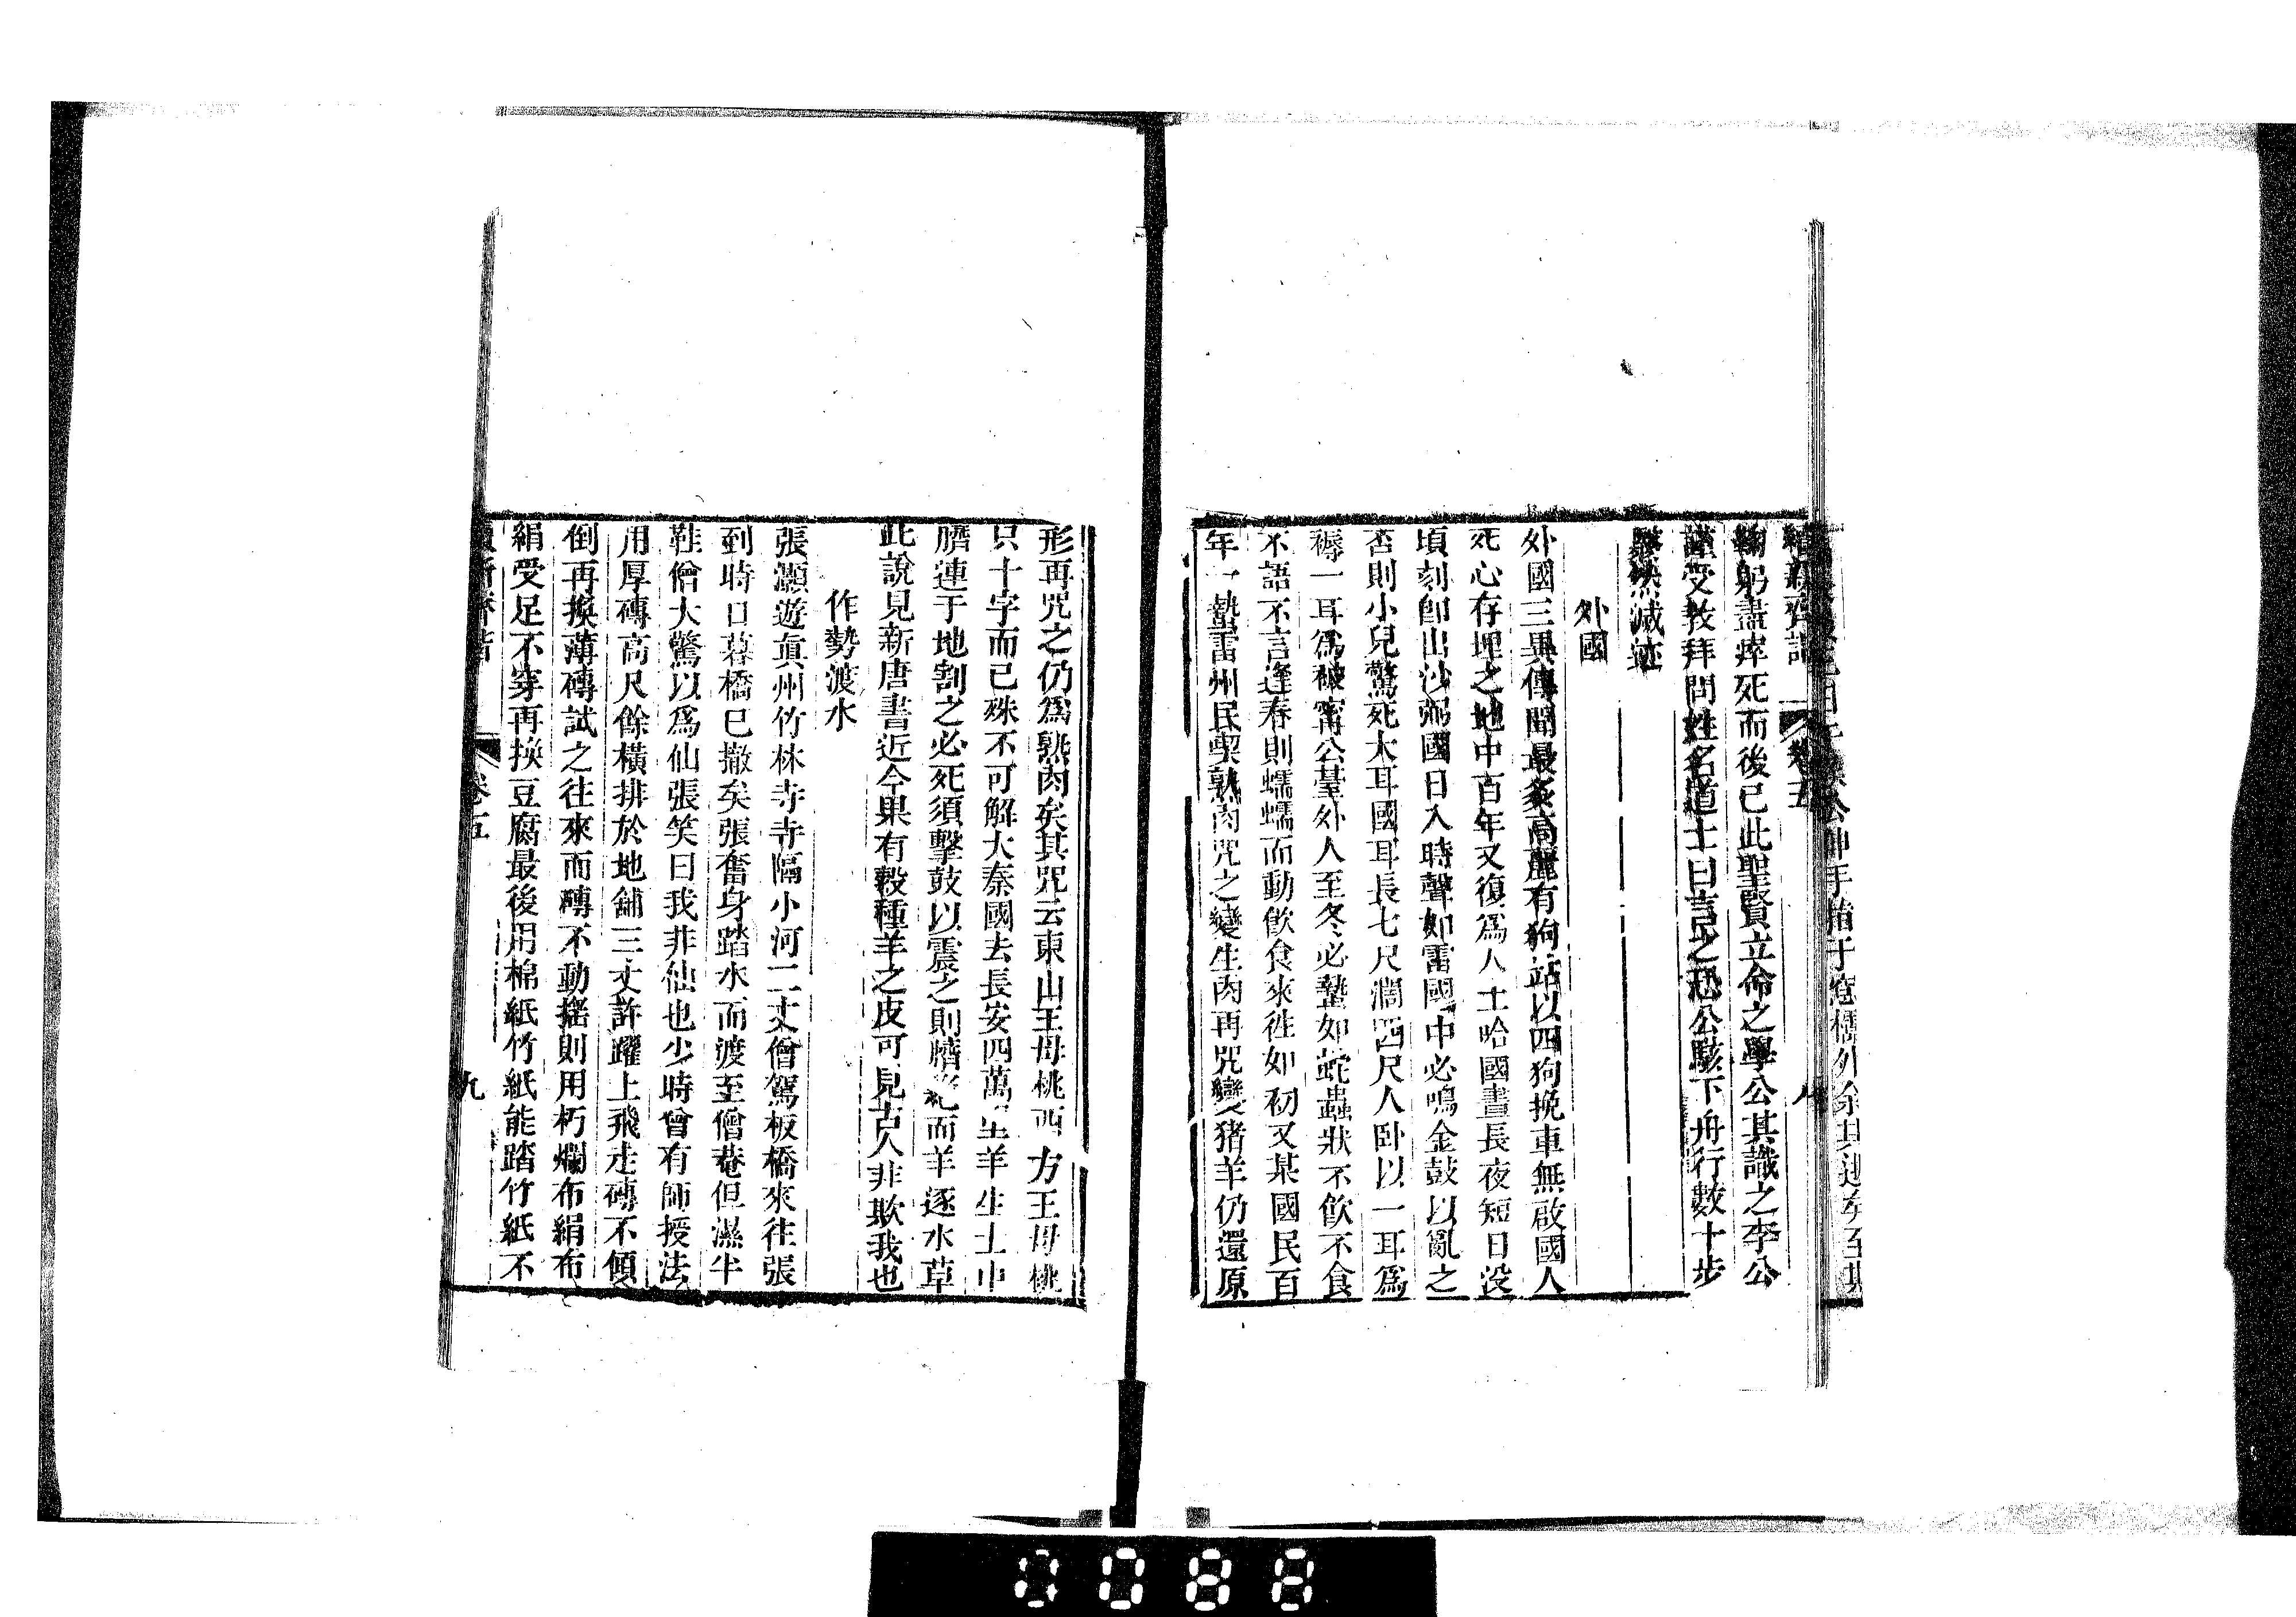 續新齊諧　卷五　八
鞠躬盡瘁死而後已此聖賢立命之學公其識之李公
謹受教拜問姓名道士曰言之恐公駭下舟行數十步
欻然滅迹
外國
外國三異傳聞最多高麗有狗站以四狗挽車無啟國人
死心存埋之地中百年又復為人土哈國晝長夜短日沒
頃刻卽出沙弼國日入時聲如雷國中必鳴金鼓以亂之
否則小兒驚死大耳國耳長七尺濶四尺人卧以一耳為
褥一耳為被甯公臺外人至冬必蟄如蛇蟲狀不飲不食
不語不言逢春則蠕蠕而動飲食來徃如初又某國民百
年一蟄雷州民喫熟肉咒之變生肉再咒變猪羊仍還原
形再咒之仍為熟肉矣其咒云東山王母桃西方王母桃
只十字而已殊不可解大秦國去長安四萬里羊生土中
臍連于地割之必死須擊鼓以震之則臍絶而羊逐水草
此說見新唐書近今果有穀種羊之皮可見古人非欺我也
作勢渡水
張灝遊真州竹林寺寺隔小河二丈僧駕板橋來往張
到時日暮橋已撤矣張奮身踏水而渡至僧菴但濕半
鞋僧大驚以為仙張笑曰我非仙也少時曾有師授法
用厚磚高尺餘橫排於地舖三丈許躍上飛走磚不傾
倒再換薄磚試之往來而磚不動搖則用朽爛布絹布
絹受足不穿再換豆腐最後用棉紙竹紙能踏竹紙不
續新齊諧　卷五　九
0088